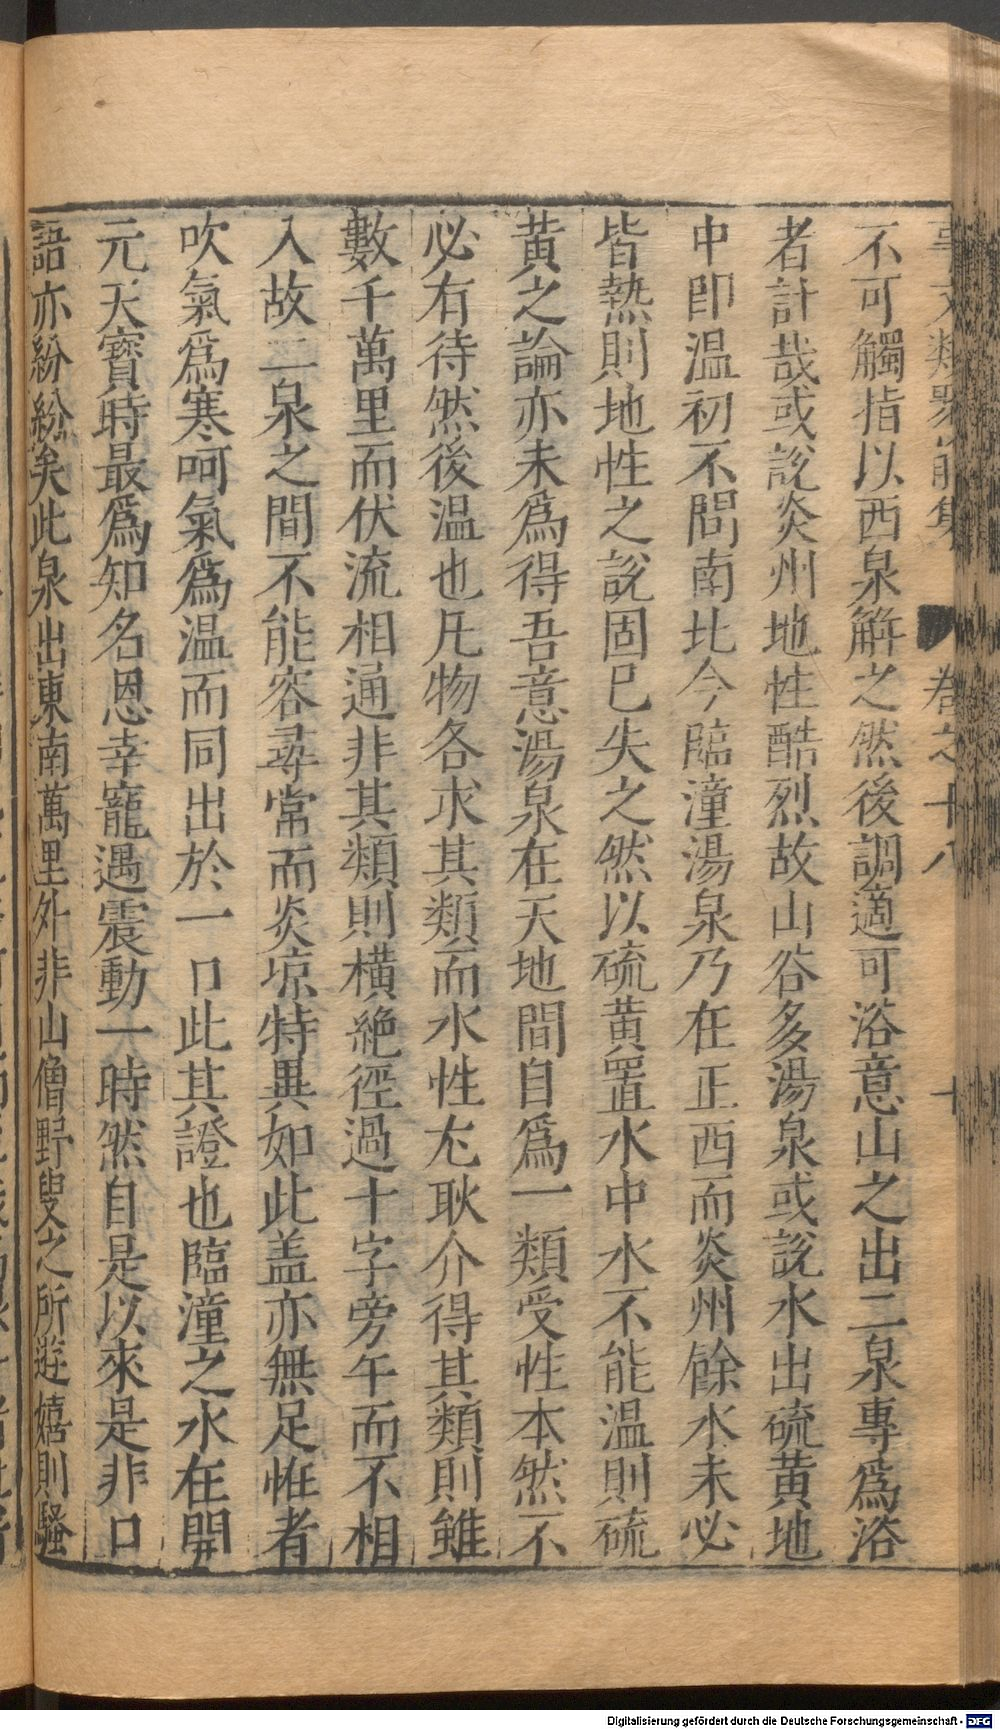 事文類聚前集 卷之十八 十
不可觸指以西泉觧之然後調適可浴意山之出二泉專爲浴
者計哉或説炎州地性酷烈故山谷多湯泉或説水出硫黄地
中即温初不問南北今臨潼湯泉乃在正西而炎州餘水未必
皆熱則地性之説固已失之然以硫黄置水中水不能温則硫
黄之論亦未爲得吾意湯泉在天地間自爲一類受性本然不
必有待然後温也凡物各求其類而水性尤耿介得其類則雖
數千萬里而伏流相通非其類則横絶徑過十字旁午而不相
入故二泉之間不能容尋常而炎凉特異如此盖亦無足恠者
吹氣爲寒呵氣爲温而同出於一口此其證也臨潼之水在開
元天寳時最爲知名恩幸寵遇震動一時然自是以來是非口
語亦紛紛矣此泉出東南萬里外非山僧野叟之所遊嬉則騷
Digitalisierung gefördert durch die Deutsche Forschungsgemeinschaft - DFG